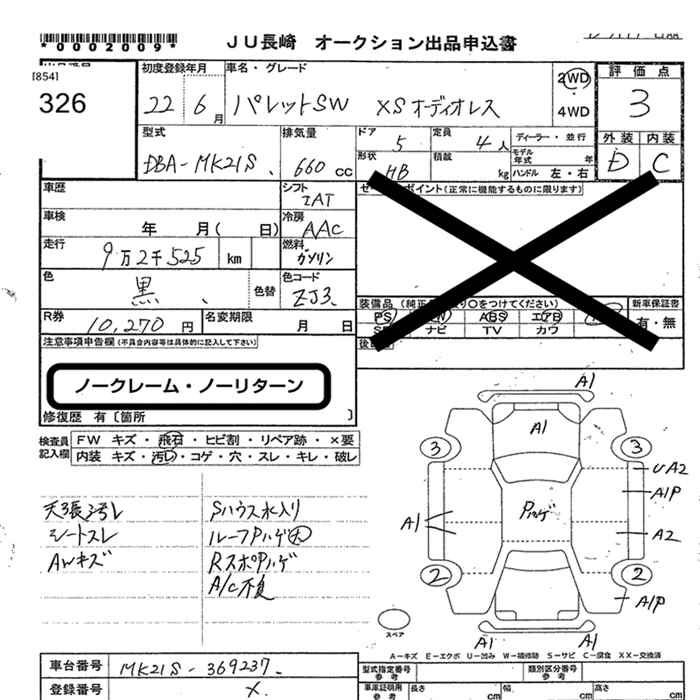 *0002009*
JU長崎 オークション出品申込書
[854]
326
初度登録年月
22年 6月
車名・グレード
パレットSW XSオーディオレス
2WD
4WD
評価点
3
外装 内装
D C
型式
DBA-MK21S
排気量
660 CC
ドア
5
定員
4人
ディーラー・並行
形状
HB
積載
kg
モデル年式 年
ハンドル 左・右
車歴
シフト
IAT
セールスポイント(正常に機能するものに限ります)
車検
年 月( 日)
冷房
AAC
走行
9万2千525 km
燃料
ガソリン
色
黒
色替
色コード
ZJ3
装備品
(純正
○をつけてください)
新車保証書
有・無
PS
ABS
エアB
ナビ
TV
カワ
R券
10,270円
名変期限
月 日
注意事項申告欄(不具合内容等は具体的に記入して下さい)
ノークレーム・ノーリターン
修復歴 有〔箇所 〕
検査員記入欄
FW キズ・飛石・ヒビ割・リペア跡・×要
内装 キズ・汚レ・コゲ・穴・スレ・キレ・破レ
天張汚レ
シートスレ
AWキズ
Sハウス水入り
ルーフPハゲ大
RスポPハゲ
A/C不良
A1
A1
3
3
UA2
A1P
Pハゲ
A1
A2
2
2
A1P
スペア
A1
A1
A-キズ E-エクボ U-凹み W-補修跡 S-サビ C-腐食 XX-交換済
車台番号
MK21S-369237
登録番号
×
型式指定番号
参考
類別区分番号
参考
車庫証明用
参考
長さ
cm
幅
cm
高さ
cm